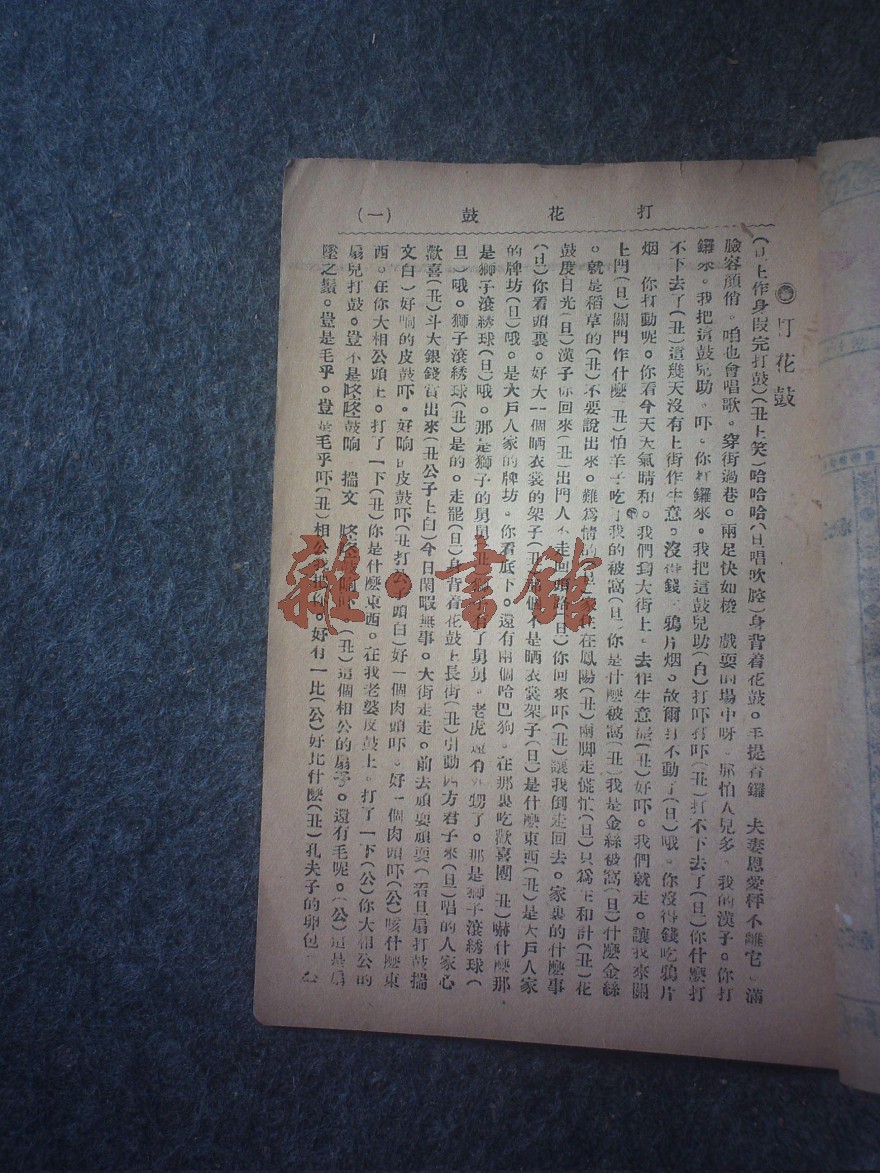 打花鼓
(一)
打花鼓
上作身段完打鼓)(丑上笑)哈哈哈(旦唱吹腔)身背着花鼓。手提着鑼 夫妻恩愛秤不離它 滿
臉容顏俏。咱也會唱歌。穿街過巷。兩足快如梭 戲耍的場中呀。那怕人兒多 我的漢子。你打
鑼來。我把這鼓兒助。吓。你打鑼來。我把這鼓兒助(白)打吓打吓(丑)打不下去了(旦)你什麼打
不下去了(丑)這幾天沒有上街作生意。沒得錢 鴉片烟。故爾打不動了(旦)哦。你沒得錢吃鴉片
烟 你打動呢。你看今天天氣晴和。我們到大街上。去作生意罷(丑)好吓。我們就走。讓我來關
上門(旦)關門作什麼(丑)怕羊子吃了我的被窩(旦)你是什麼被窩(丑)我是金絲被窩(旦)什麼金絲
。就是稻草的(丑)不要說出來。難為情的 家住在鳳陽(丑)兩脚走慌忙(旦)只為 和計(丑)花
鼓度日光(旦)漢子你回來(丑)出門人不走回頭路(旦)你回來吓(丑)讓我倒走回去。家裏的什麼事
(旦)你看頭裏。好大一個晒衣裳的架子(丑) 不是晒衣裳架子(旦)是什麼東西(丑)是大戶人家
的牌坊(旦)哦。是大戶人家的牌坊。你看底下。還有兩個哈巴狗。在那裏吃歡喜團 丑)嚇什麼那
是獅子滾綉球(旦)哦。那是獅子的舅舅 有了舅舅。老虎還有外甥了。那是獅子滾綉球(
旦)哦。獅子滾綉球(丑)是的。走罷(旦)身背着花鼓上長街(丑)引動四方君子來(旦)唱的人家心
歡喜(丑)斗大銀錢賞出來(丑公子上白)今日閑暇無事。大街走走。前去頑耍頑耍(看旦扇打鼓揣
文白)好响的皮鼓吓。好响的皮鼓吓(丑打公子頭白)好一個肉頭吓。好一個肉頭吓(公)咳什麼東
西。在你大相公頭上。打了一下(丑)你是什麼東西。在我老婆皮鼓上。打了一下(公)你大相公的
扇兒打鼓。豈不是鼕鼕鼓响 揣文 鼕鼕 响吓 (丑)這個相公的扇子。還有毛呢。(公)這是扇
墜之鬚。豈是毛乎。豈是毛乎吓(丑)相公 好有一比(公)好比什麼(丑)孔夫子的卵包 公
雜·書館